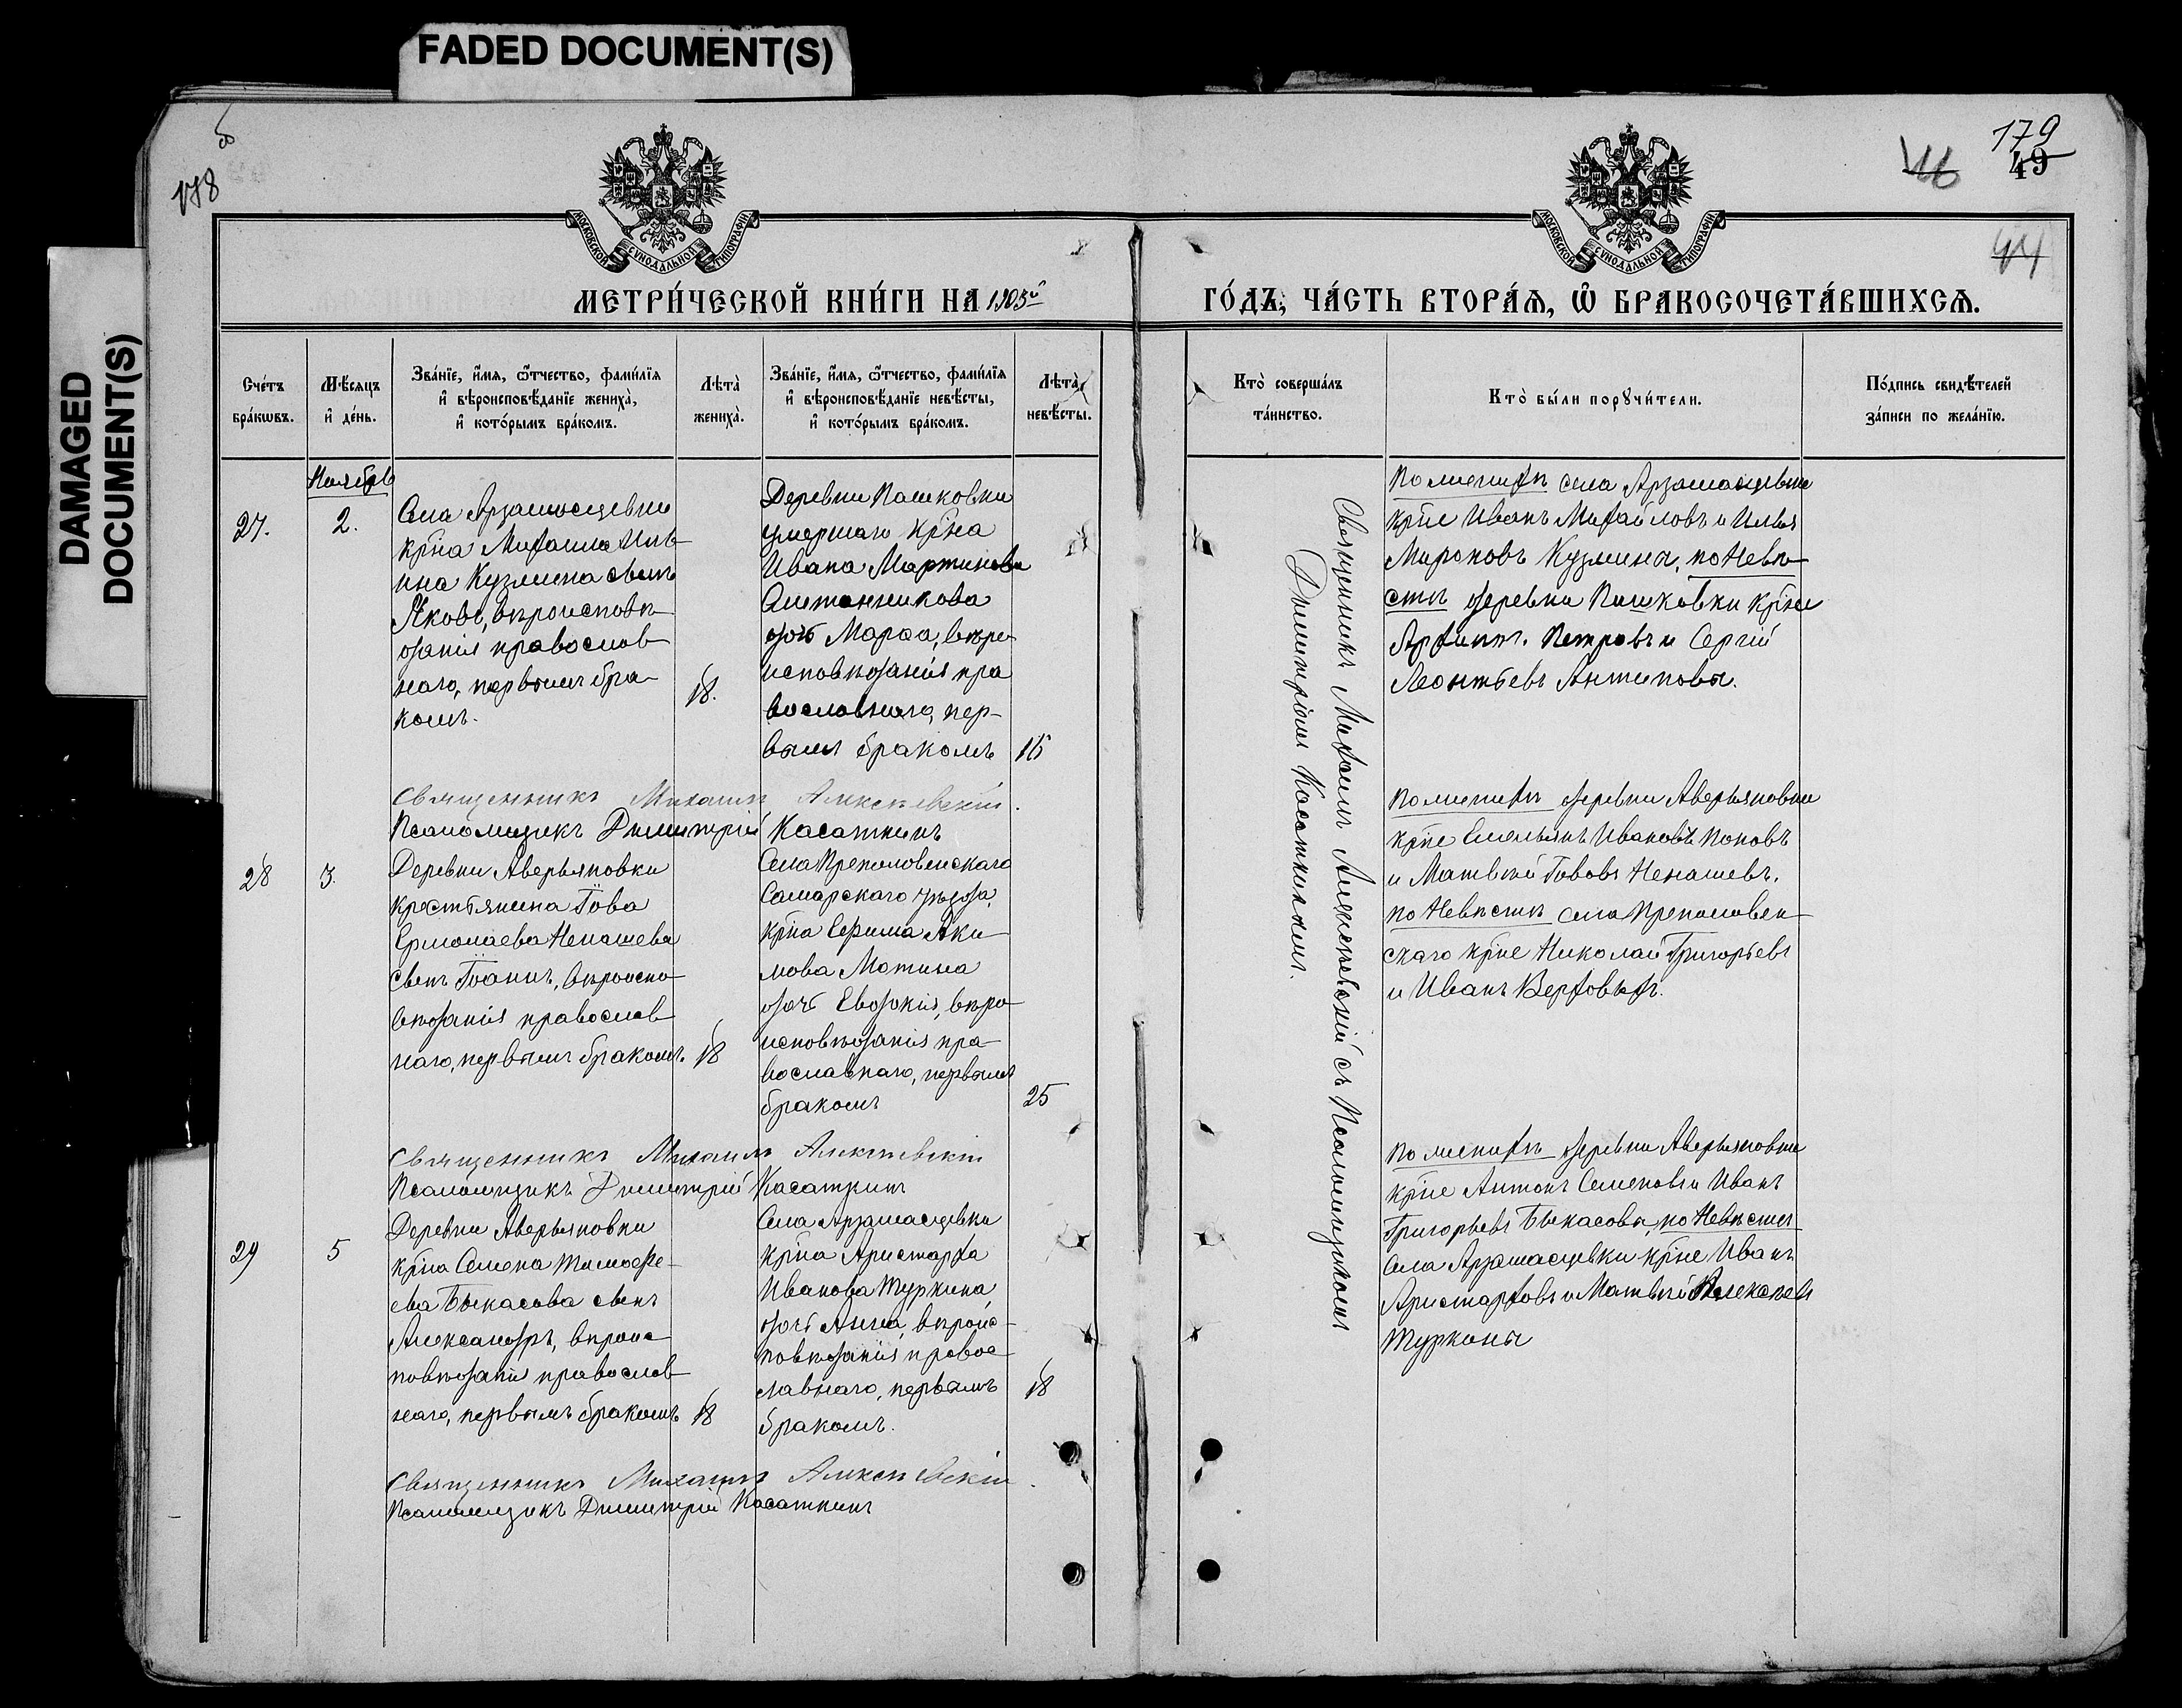 FADED DOCUMENT(S)
DAMAGED
DOCUMENT(S)
об
178
179
46
49
44
МОСКОВСКОЙ СѴНОДАЛЬНОЙ ТИПОГРАФІИ
МОСКОВСКОЙ СѴНОДАЛЬНОЙ ТИПОГРАФІИ
МЕТРИ́ЧЕСКОЙ КНИ́ГИ НА 1905й
ГО́ДЪ, ЧА́СТЬ ВТОРА́Ѧ, Ѡ҆ БРАКОСОЧЕТА́ВШИХСѦ.
Сче́тъ
бра́кѡвъ.
Мѣ́сяцъ
и҆ де́нь.
Зва́нїе, и҆́мѧ, ѻ҆́тчество, фами́лїѧ
и҆ вѣроисповѣ́данїе жениха̀,
и҆ кото́рымъ бра́комъ.
Лѣта̀
жениха̀.
Зва́нїе, и҆́мѧ, ѻ҆́тчество, фами́лїѧ
и҆ вѣроисповѣ́данїе невѣ́сты,
и҆ кото́рымъ бра́комъ.
Лѣта̀
невѣ́сты.
Кто̀ соверша́лъ
та́инство.
Кто̀ бы́ли порꙋчи́тели.
По́дпись свидѣ́телей
за́писи по жела́нїю.
Ноябрь
27.
2.
Села Арзамасцевки
кр̃на Михаила Иль-
ина Кузмина сынъ
Яковъ, вѣроисповѣ-
данія православ-
наго, первымъ бра-
комъ.
18.
Деревни Пашковки
умершаго кр̃на
Ивана Мартинова
дочь Марѳа, вѣро-
исповѣданія пра
вославнаго, пер-
вымъ бракомъ
16
Священникъ Михаилъ Алексѣевскій с псаломщикомъ
Димитріемъ Касаткинымъ.
По женихѣ села Арзамасцевки
кр̃не Иванъ Михайловъ и Илья
Мироновъ Кузмина, по невѣ-
стѣ деревни Пашковки кр̃не
Архипъ Петровъ и Сергій
Леонтьевъ Антиповы.
Священникъ Михаилъ Алексѣевскій.
Псаломщикъ Димитрій Касаткинъ
28
3.
Деревни Аверьяновки
крестьянина Іова
Ермолаева Ненашева
сынъ Іоаннъ, вѣроиспо-
вѣданія православ-
наго, первымъ бракомъ.
18
Села Преполовенскаго
Самарскаго уѣзда,
кр̃на Ефима Аки-
мова Мотина
дочь Евдокія, вѣро-
исповѣданія пра-
вославнаго, первымъ
бракомъ
25
По женихѣ деревни Аверьяновки
кр̃не Емельянъ Ивановъ Поповъ
и Матвѣй Іововъ Ненашевъ.
по невѣстѣ села Преполовен-
скаго кр̃не Николай Григорьевъ
и Иванъ Верховыхъ.
Священникъ Михаилъ Алексѣевскій
Псаломщикъ Димитрій Касаткинъ
29
5
Деревни Аверьяновки
кр̃на Семена Тимофе-
ева Быкасова сынъ
Александръ, вѣроис-
повѣданія православ-
наго, первымъ бракомъ
18
Села Арзамасцевки
кр̃на Аристарха
Иванова Туркина
дочь Анна, вѣроис-
повѣданія правос-
лавнаго, первымъ
бракомъ.
18
По женихѣ деревни Аверьяновки
кр̃не Антонъ Семеновъ и Иванъ
Григорьевъ Быкасовы, по невѣстѣ
села Арзамасцевки кр̃не Иванъ
Аристарховъ и Матвѣй Алексѣевъ
Туркины
Священникъ Михаилъ Алексѣевскій.
Псаломщикъ Димитрій Касаткинъ